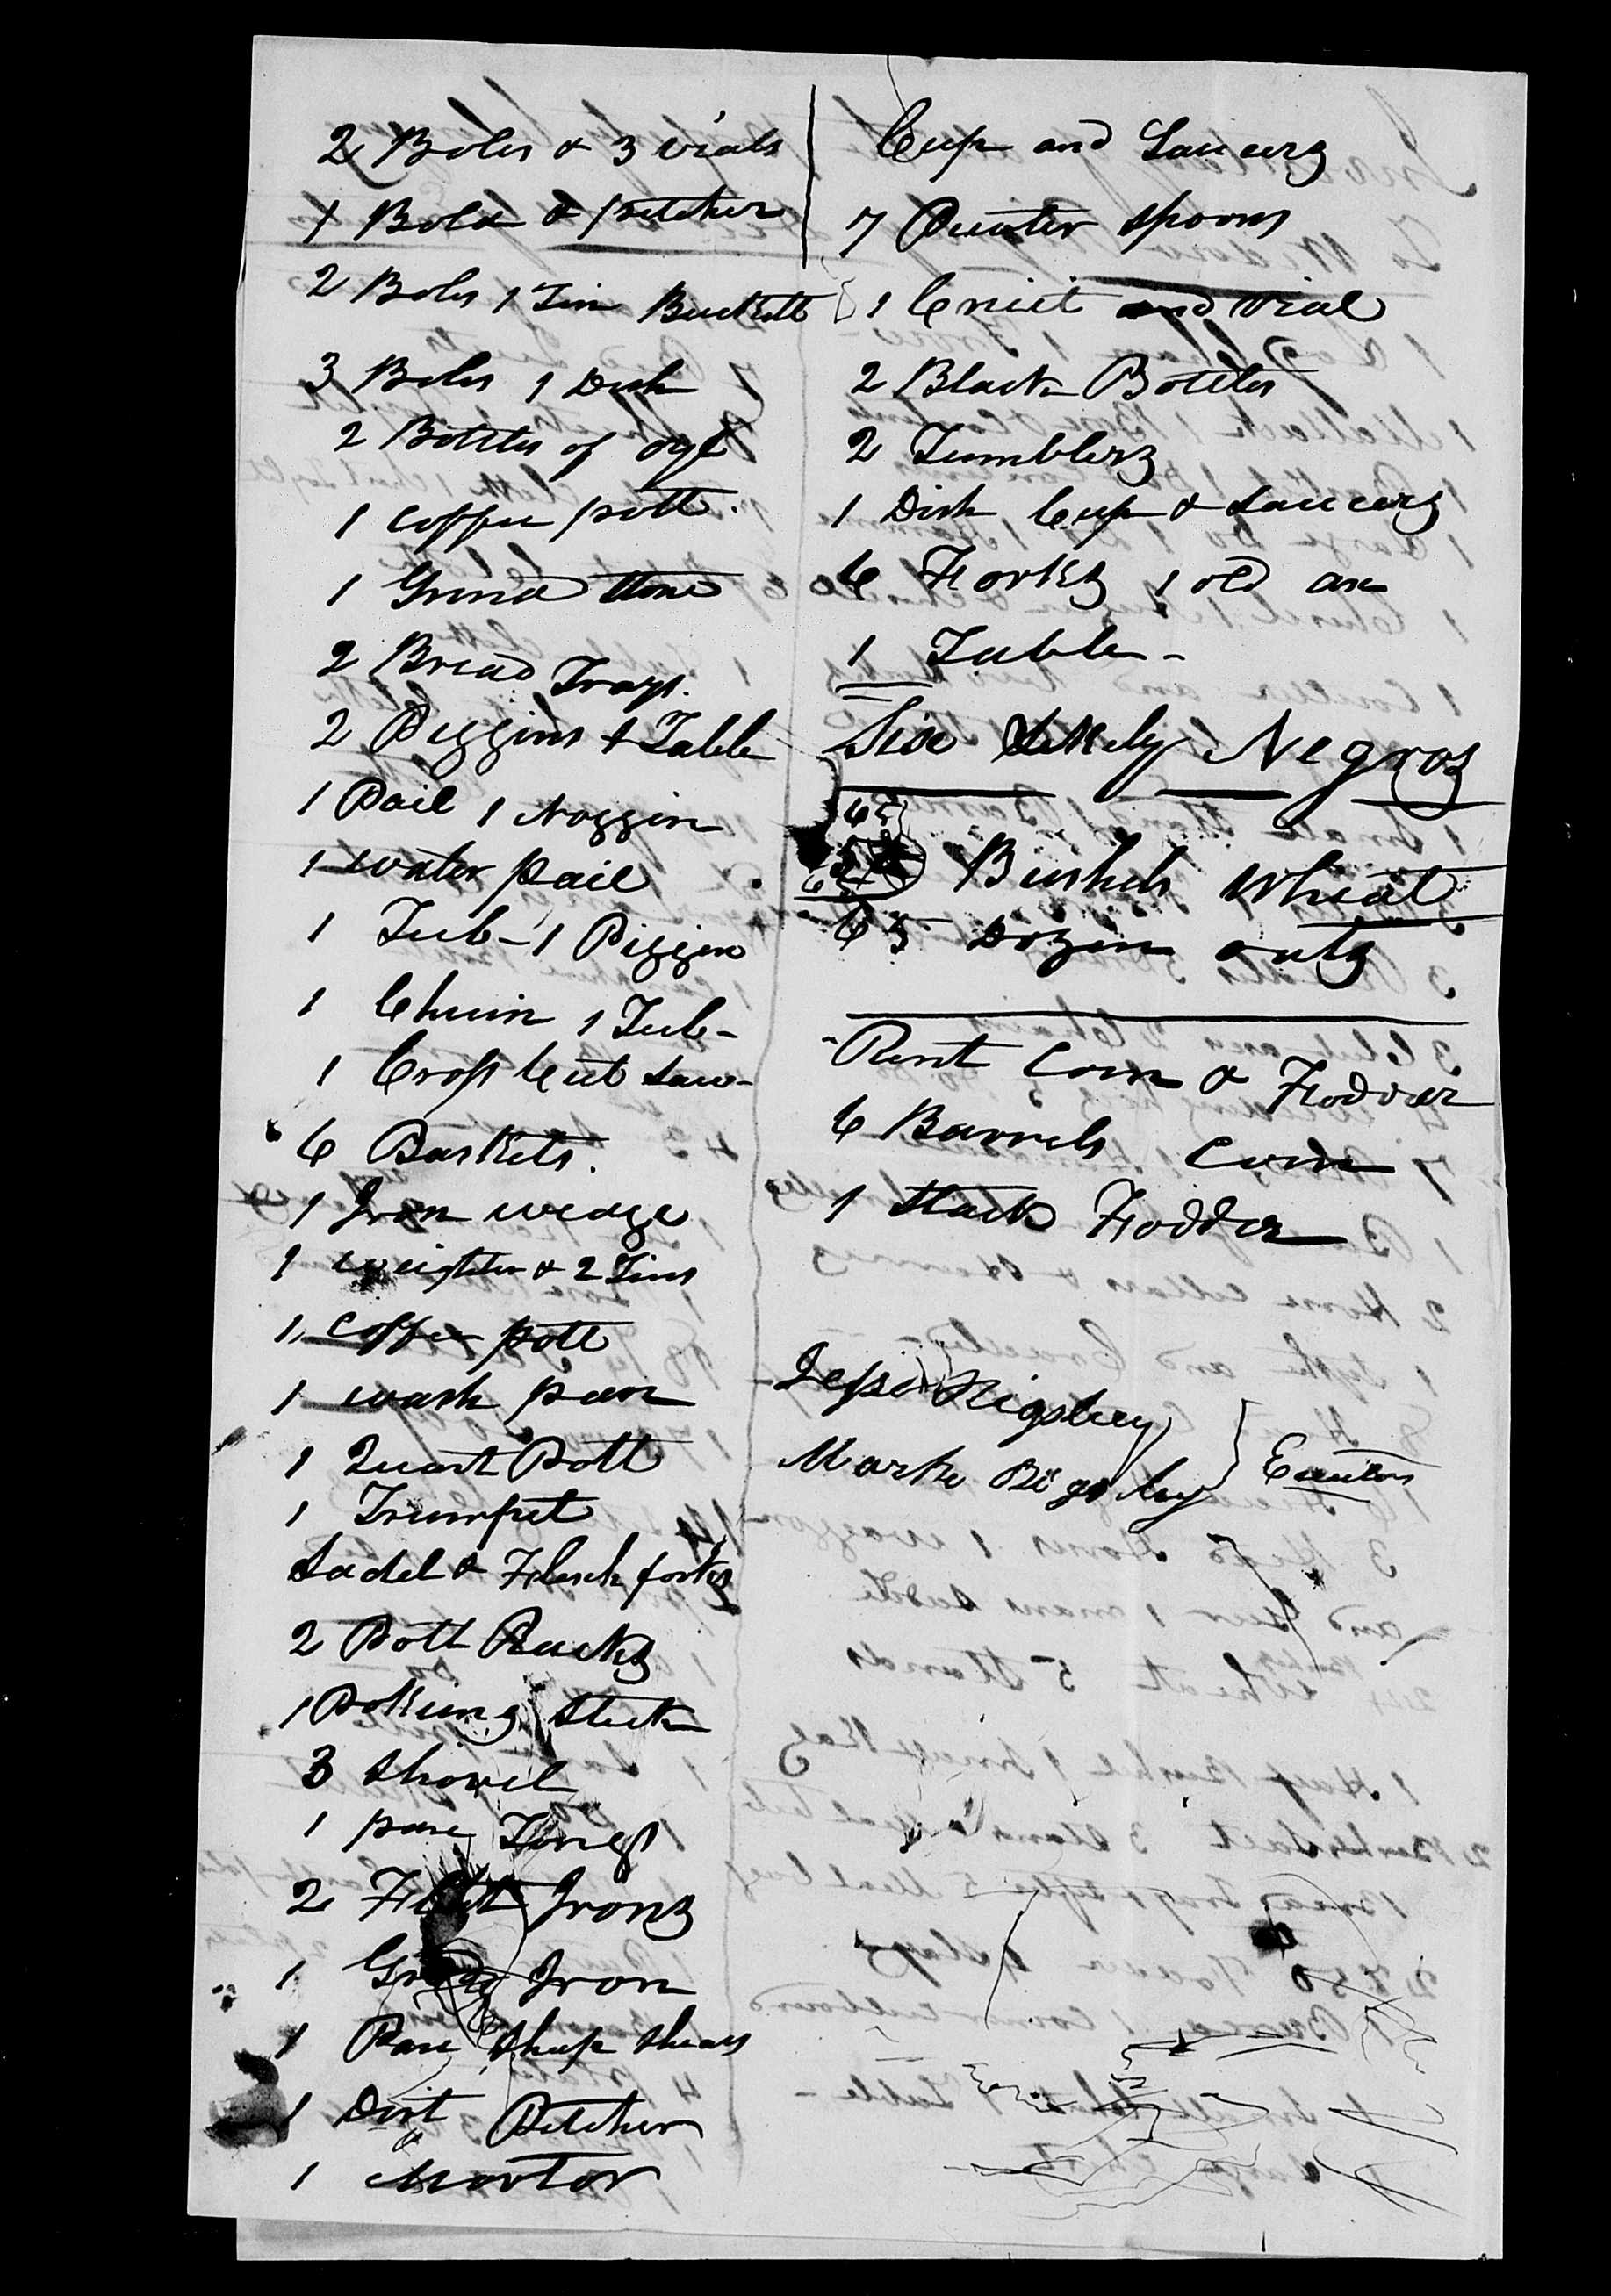 2 Boles & 3 vials
1 Bole & pitcher
2 Boles 1 Tin Buckett
3 Boles 1 Dish
2 Bottles of oyl
1 coffee pott.
1 Grind stone
2 Bread Trays.
2 Piggins & Table
1 Pail 1 Noggin
1 water pail
1 Tub - 1 Piggin
1 Churn 1 Tub -
1 Cross Cut saw -
6 Baskets.
1 Iron wedge
1 & 2 Tins
1 coffee pott
1 wash pan
1 Quart Pott
1 Trumpet
Ladel & Flesh forks
2 Pott Racks
1 Poking stick
3 shovel
1 pare Tongs
2 Flatt Irons
1 Iron
1 Pare sheep shears
1 Dirt Pitcher
1 Mortor
Cups and Saucers
7 Peuter spoons
1 Cruit and vial
2 Black Bottles
2 Tumblers
1 Dish Cups & Saucers
6 Forks 1 old ax
1 Table -
Six likely Negros
65
Bushels wheat
65 Dozen oats
Rent Corn & Fodder
6 Barrels Corn
1 stack Fodder
Jesse Rigsbey
Marke Rigsbey } Exectors